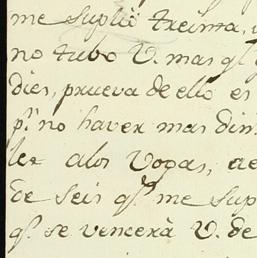 me suplió treinta,
no tubo V. mas q.
dies, prueva de ello es
p.r no haver mas din
ler alos Vogas, de
de seis q.e me sup
q.e se vencerà V. de